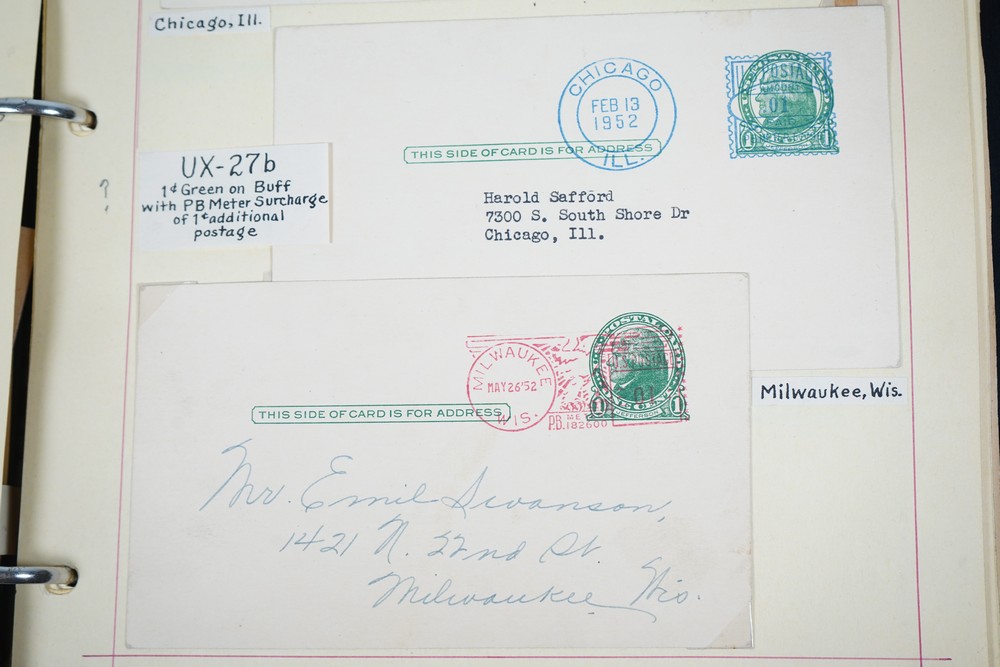 Chicago, Ill.
CHICAGO
FEB 13
1952
ILL.
POSTAL
01
1 1
THIS SIDE OF CARD IS FOR ADDRESS
Harold Safford
7300 S. South Shore Dr
Chicago, Ill.
UX-27b
1¢ Green on Buff
with PB Meter Surcharge
of 1¢ additional
postage
?
MILWAUKEE
MAY 26 '52
WIS.
P.B. METER
182600
U.S. POSTAGE
01
1 JEFFERSON 1
THIS SIDE OF CARD IS FOR ADDRESS
Milwaukee, Wis.
Mr. Emil Swanson,
1421 N. 22nd St.
Milwaukee Wis.